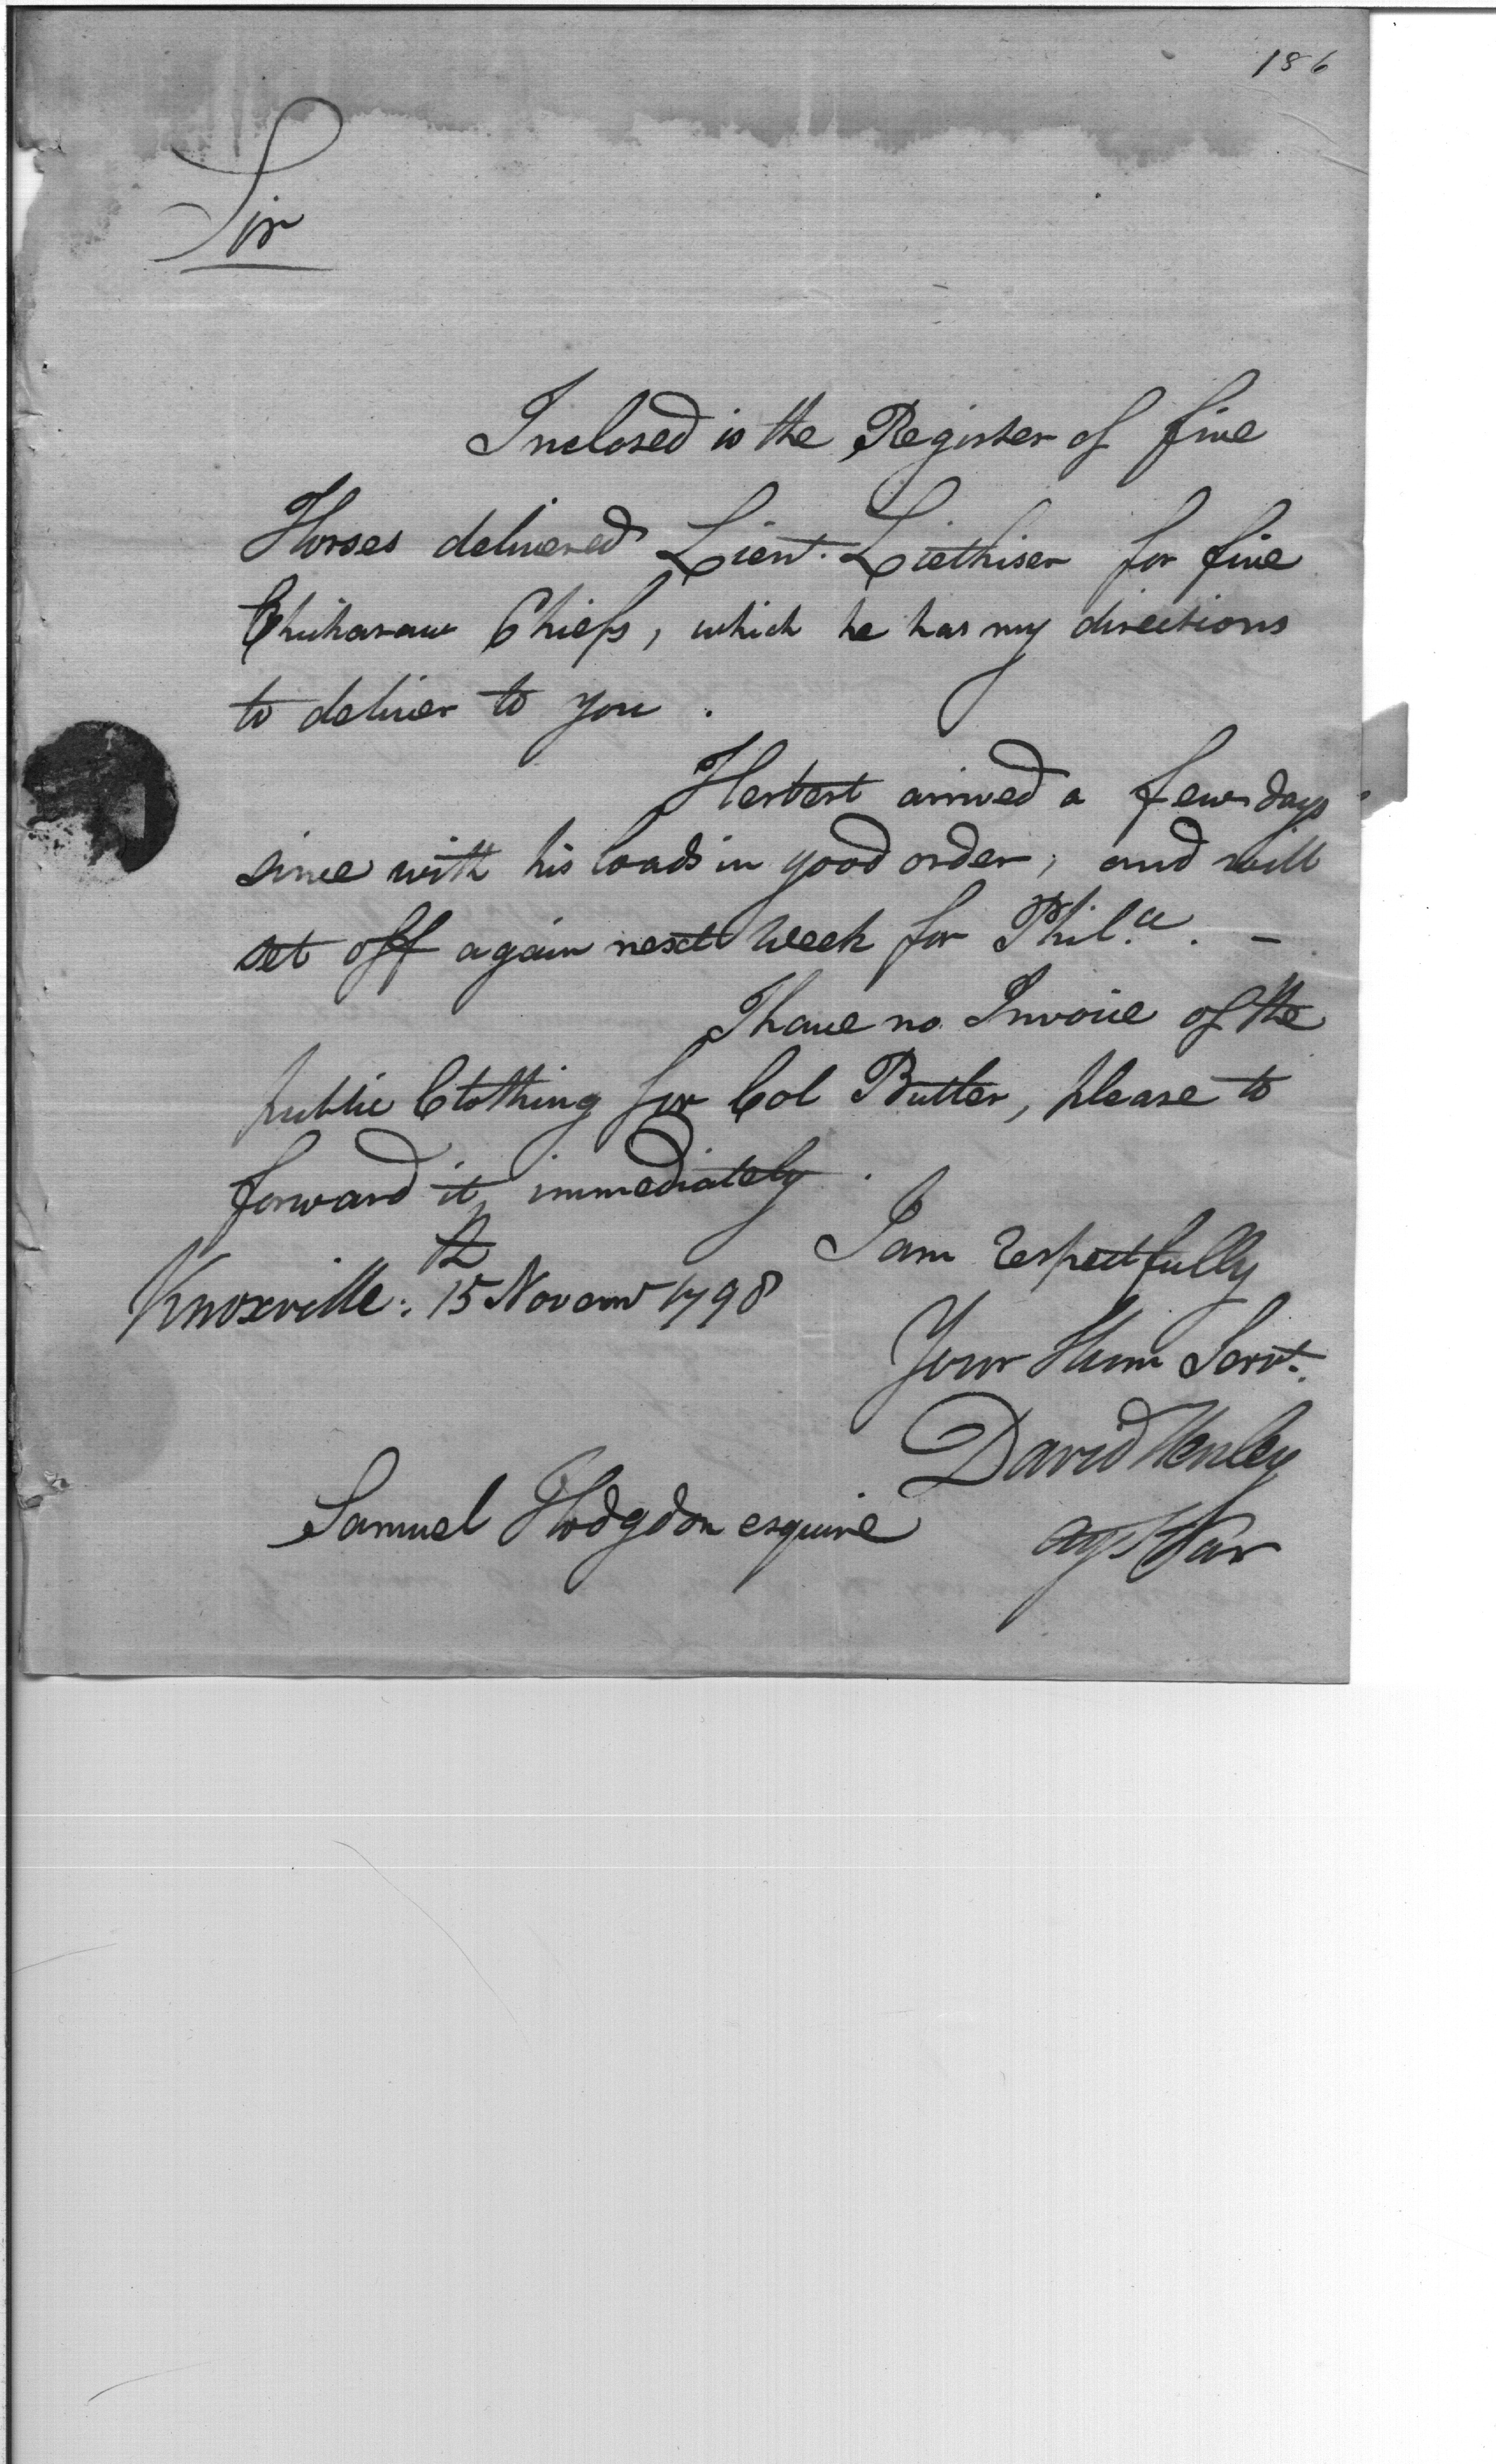 186
Sir
Inclosed is the Register of five
Horses delivered Lieut. Liethiser for five
Chickasaw Chiefs, which he has my directions
to deliver to you.
Herbert arrived a few days
since with his loads in good order, and will
set off again next week for Phil.a. –
I have no Invoice of the
public Clothing for Col Butler, please to
forward it immediately.
I am respectfully
Knoxville: 15th Novemr 1798
Your Hum Servt.
David Henley
Samuel Hodgdon esquire
agt War